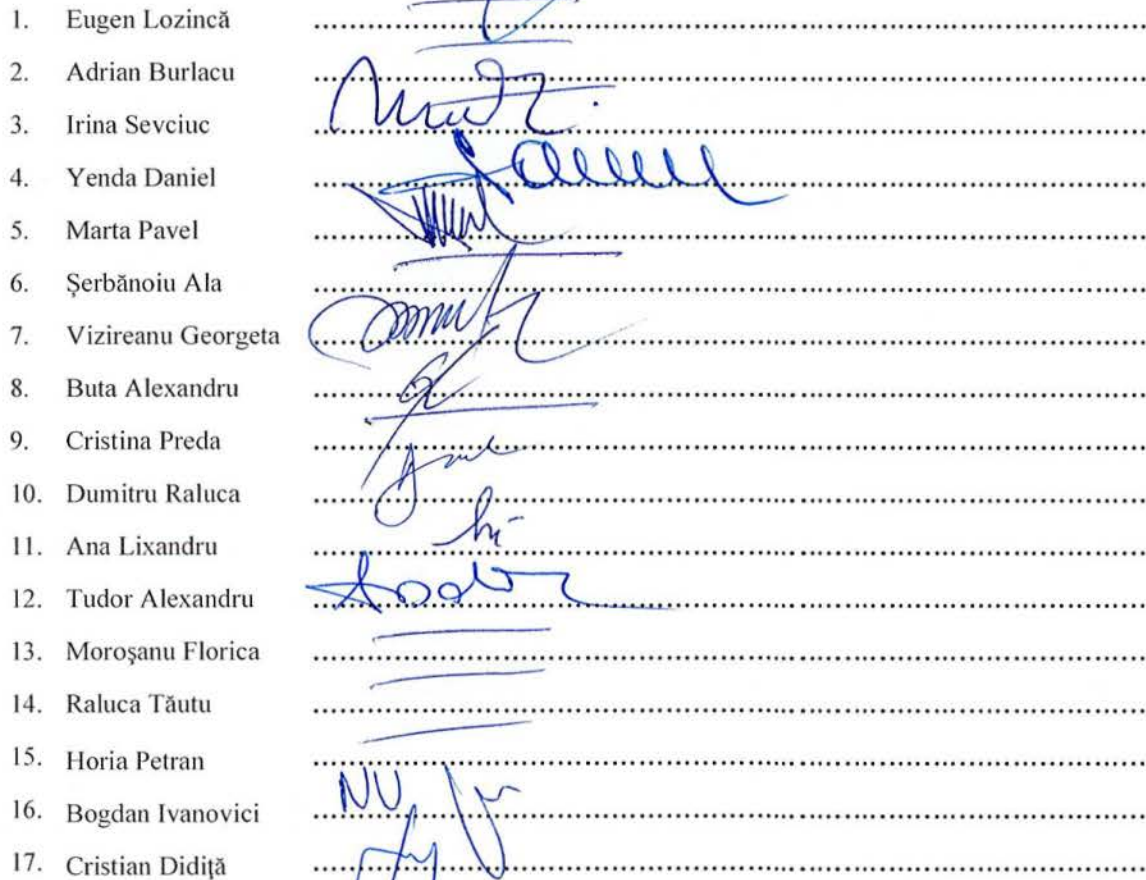 1. Eugen Lozincă
2. Adrian Burlacu
3. Irina Sevciuc
4. Yenda Daniel
5. Marta Pavel
6. Șerbănoiu Ala
7. Vizireanu Georgeta
8. Buta Alexandru
9. Cristina Preda
10. Dumitru Raluca
11. Ana Lixandru
12. Tudor Alexandru
13. Moroşanu Florica
14. Raluca Tăutu
15. Horia Petran
16. Bogdan Ivanovici NU
17. Cristian Didiţă